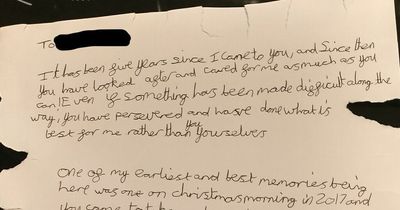 To
It has been five years since I came to you, and since then
you have looked after and cared for me as much as you
can! Even if something has been made difficult along the
way, you have persevered and have done what is
best for me rather than you yourselves
One of my earliest and best memories being
here was one on christmas morning in 2017 and
you